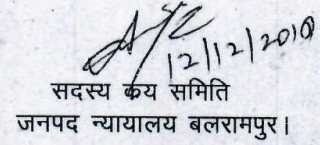 12/12/2018
सदस्य क्रय समिति
जनपद न्यायालय बलरामपुर।